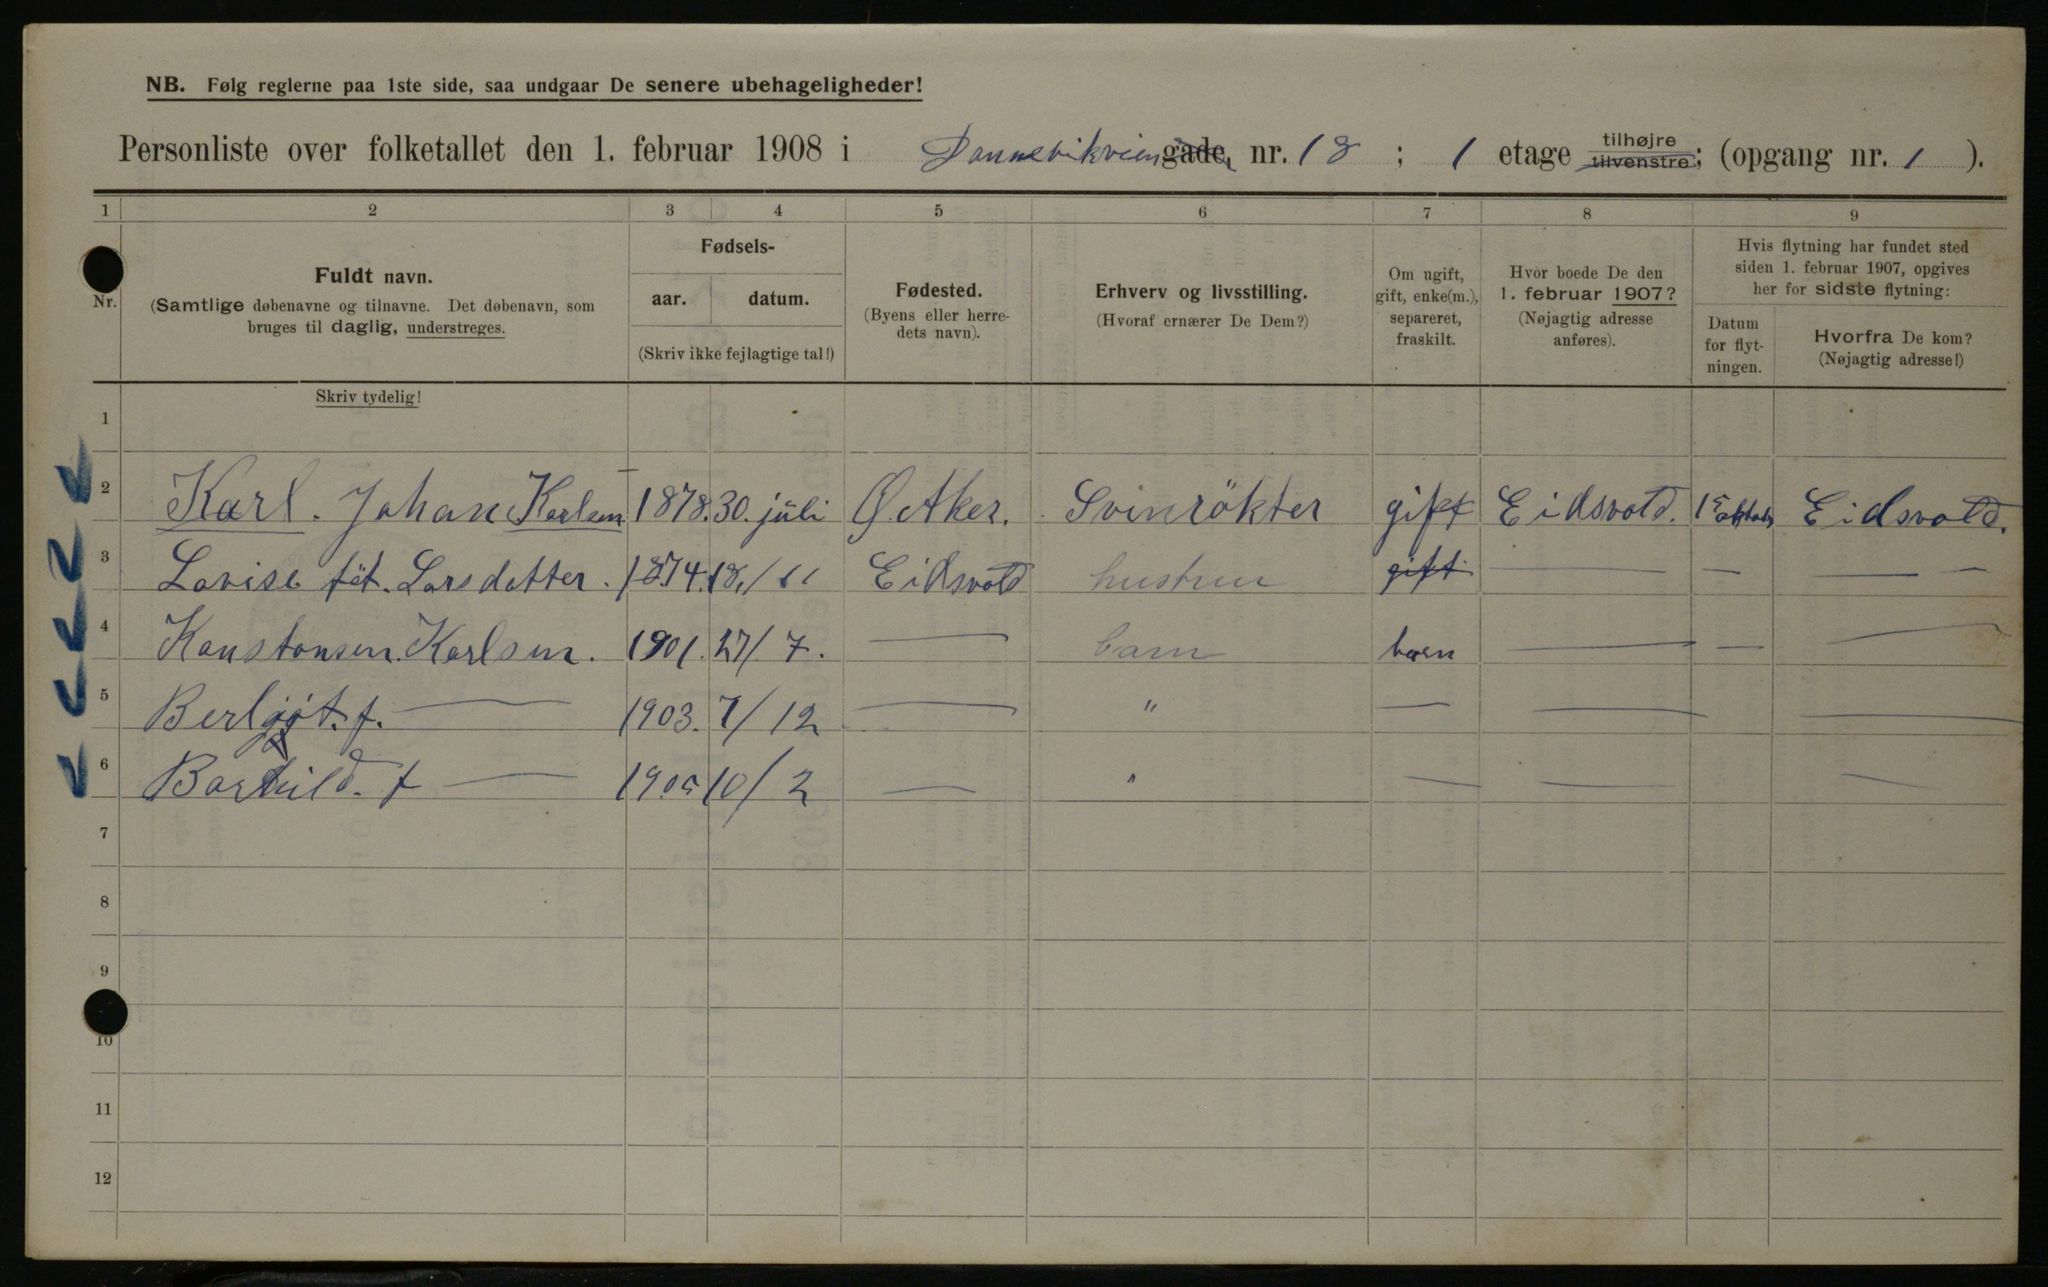 NB. Følg reglerne paa 1ste side, saa undgaar De senere ubehageligheder!
Personliste over folketallet den 1. februar 1908 i Dannevikveien gade, nr. 18 ; 1 etage tilhøjre tilvenstre; (opgang nr. 1 ).
1 2 3 4 5 6 7 8 9
Nr.
Fuldt navn.
(Samtlige døbenavne og tilnavne. Det døbenavn, som
bruges til daglig, understreges.
Skriv tydelig!
Fødsels-
aar. datum.
(Skriv ikke fejlagtige tal!)
Fødested.
(Byens eller herre-
dets navn).
Erhverv og livsstilling.
(Hvoraf ernærer De Dem?)
Om ugift,
gift, enke(m.),
separeret,
fraskilt.
Hvor boede De den
1. februar 1907?
(Nøjagtig adresse
anføres).
Hvis flytning har fundet sted
siden 1. februar 1907, opgives
her for sidste flytning:
Datum
for flyt-
ningen.
Hvorfra De kom?
(Nøjagtig adresse!)
1
2 Karl. Johan Karlsen 1878. 30. juli Ø. Aker. Svinrökter gift Eidsvold. Eidsvold.
3 Lovise föt. Larsdatter. 1874. 18/11 Eidsvold hustru gift — — — —
4 Konstansen. Karlsen. 1901. 27/7. — barn barn — — —
5 Berljot. f. — 1903. 7/12 — " — — —
6 Borhild. f — 1905 10/2 — " — — —
7
8
9
10
11
12